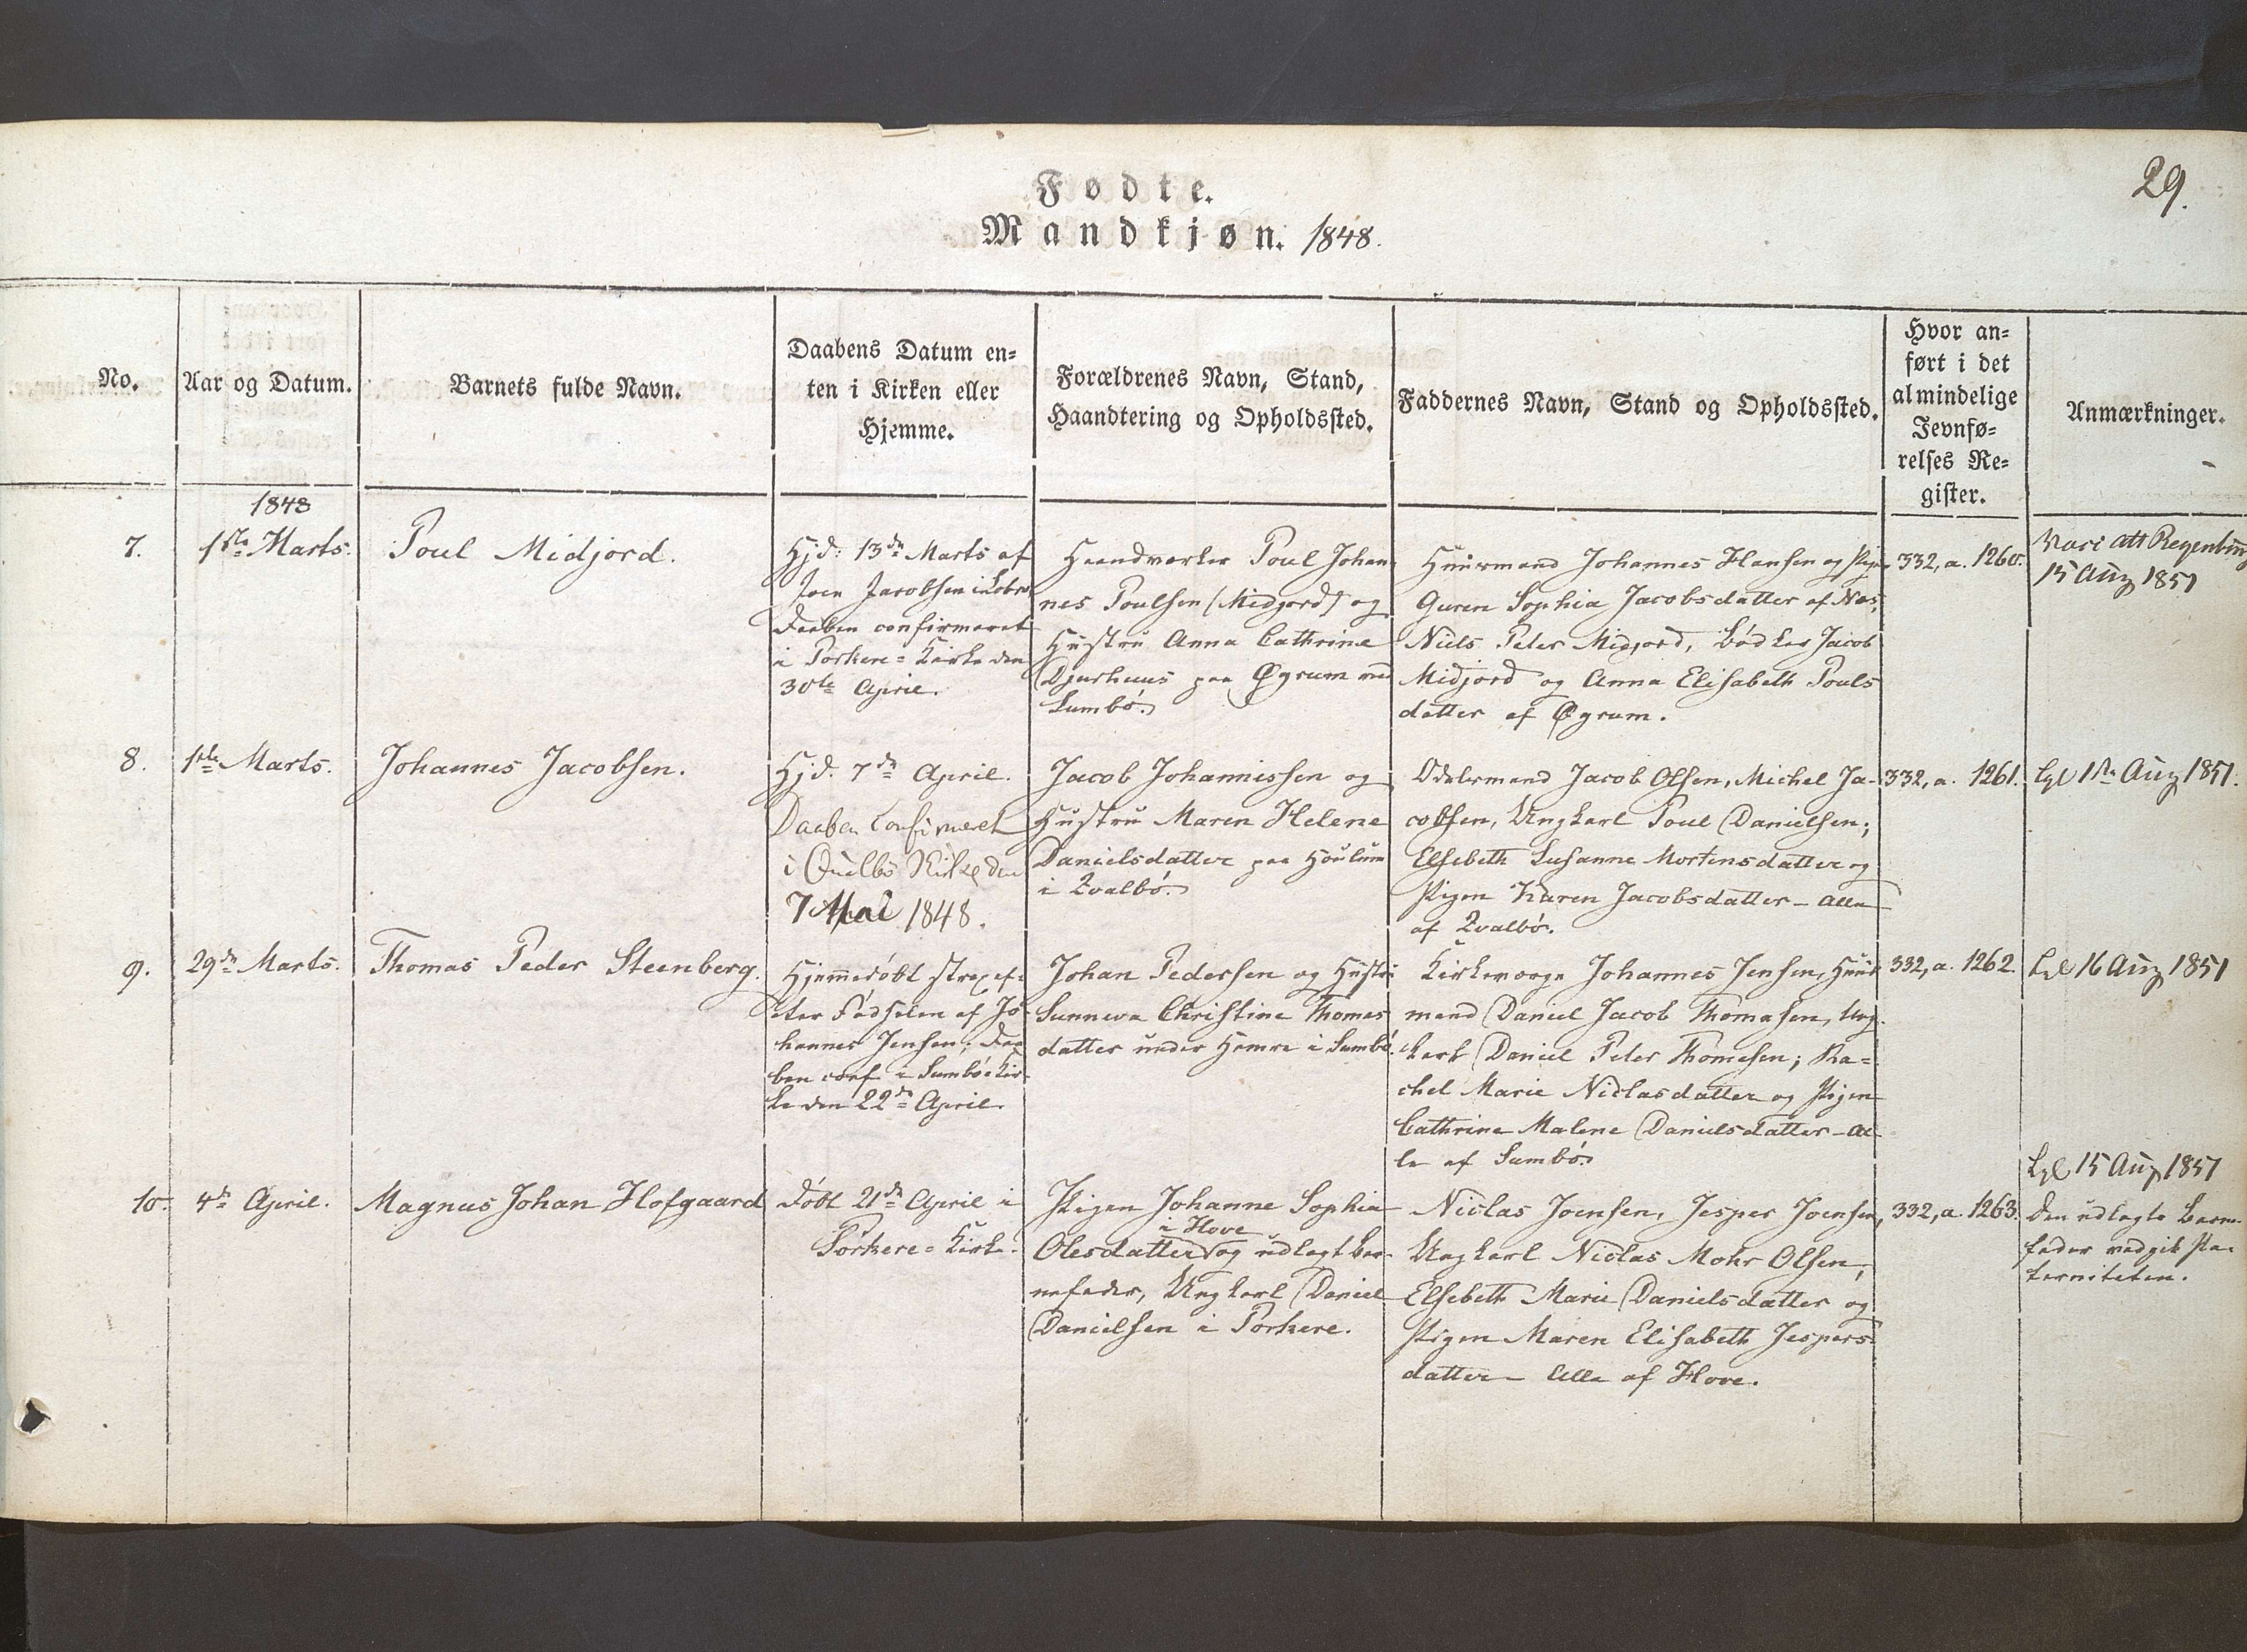 29.
Fødte.
Mandkjøn. 1848.
No.
Aar og Datum.
Barnets fulde Navn.
Daabens Datum en=
ten i Kirken eller
Hjemme.
Forældrenes Navn, Stand,
Haandtering og Opholdssted.
Faddernes Navn, Stand og Opholdssted.
Hvor an=
ført i det
almindelige
Jevnfø=
relses Re=
gister.
Anmærkninger.
1848
7.
1ste Marts.
Poul Midjord.
Hjd: 13de Marts af
Joen Jacobsen i
Daaben confirmeret
i Porkere=Kirke den
30te April.
Haandværker Poul Johan
nes Poulsen (Midjord) og
Hustru Anna Cathrine
Djurhuus paa Øgrum ved
Sumbø.
Huusmand Johannes Hansen og Pige
Guren Sophia Jacobsdatter af Næs,
Niels Peter Midjord, Jacob
Midjord og Anna Elisabeth Pouls
datter af Øgrum.
332, a. 1260.
Vacc att
15 Aug 1851
8.
1ste Marts.
Johannes Jacobsen.
Hjd. 7de April.
Daaben Confirmeret
i Qualbø Kirke den
7 Mai 1848.
Jacob Johannissen og
Hustru Maren Helene
Danielsdatter paa Houlum
i Qvalbø.
Odelsmand Jacob Olsen, Michel Ja-
cobsen, Ungkarl Poul Danielsen;
Elsebeth Susanne Mortensdatter og
Pigen Karen Jacobsdatter - alle
af Qvalbø.
332, a. 1261.
1ste Aug 1851.
9.
29de Marts.
Thomas Peder Steenberg.
Hjemmedøbt strax ef-
ter Fødselen af Jo-
hannes Jensen; Daa
ben conf. i Sumbø=Kir-
ke den 22de April.
Johan Pedersen og Hustru
Sunneva Christine Thomas
datter under Hamre i Sumbø.
Kirkeværge Johannes Jensen, Huus
mand Daniel Jacob Thomasen, Ung-
karl Daniel Peter Thomesen; Ra=
chel Marie Niclasdatter og Pigen
Cathrine Malene Danielsdatter - al
le af Sumbø.
332, a. 1262.
16 Aug 1851
10.
4de April.
Magnus Johan Hofgaard
Døbt 21de April i
Porkere=Kirke.
Pigen Johanne Sophia
i Hove
Olesdatter og udlagt Bar-
nefader, Ungkarl Daniel
Danielsen i Porkere.
Niclas Joensen, Jesper Joensen,
Ungkarl Niclas Mohr Olsen,
Elsebeth Marie Danielsdatter og
Pigen Maren Elisabeth Jespers
datter - Alle af Hove.
332, a. 1263.
15 Aug 1851
Den udlagte Barne
fader vedgik Pa-
terniteten.